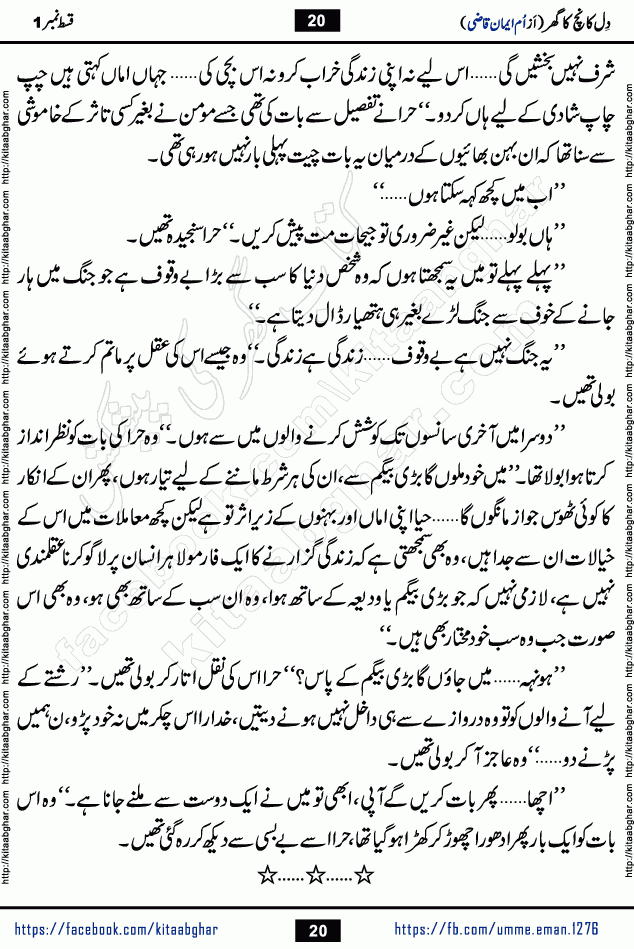 دِل کانچ کا گھر (اَز اُم ایمان قاضی)
20
قسط نمبر 1
شرف نہیں بخشیں گی...... اس لیے نہ اپنی زندگی خراب کرو نہ اس بچی کی...... جہاں اماں کہتی ہیں چپ
چاپ شادی کے لیے ہاں کردو۔‘‘ حرا نے تفصیل سے بات کی تھی جسے مومن نے بغیر کسی تاثر کے خاموشی
سے سنا تھا کہ ان بہن بھائیوں کے درمیان یہ بات چیت پہلی بار نہیں ہورہی تھی۔
’’اب میں کچھ کہہ سکتا ہوں......‘‘
’’ہاں بولو...... لیکن غیر ضروری توجیحات مت پیش کریں۔‘‘ حرا سنجیدہ تھیں۔
’’پہلے پہلے تو میں یہ سمجھتا ہوں کہ وہ شخص دنیا کا سب سے بڑا بے وقوف ہے جو جنگ میں ہار
جانے کے خوف سے جنگ لڑے بغیر ہی ہتھیار ڈال دیتا ہے۔‘‘
’’یہ جنگ نہیں ہے بے وقوف...... زندگی ہے زندگی۔‘‘ وہ جیسے اس کی عقل پر ماتم کرتے ہوئے
بولی تھیں۔
’’دوسرا میں آخری سانسوں تک کوشش کرنے والوں میں سے ہوں۔‘‘ وہ حرا کی بات کو نظر انداز
کرتا ہوا بولا تھا۔ ’’میں خود ملوں گا بڑی بیگم سے، ان کی ہر شرط ماننے کے لیے تیار ہوں، پھر ان کے انکار
کا کوئی ٹھوس جواز مانگوں گا...... حیا اپنی اماں اور بہنوں کے زیر اثر تو ہے لیکن کچھ معاملات میں اس کے
خیالات ان سے جدا ہیں، وہ بھی سمجھتی ہے کہ زندگی گزارنے کا ایک فارمولا ہر انسان پر لاگو کرنا عقلمندی
نہیں ہے، لازمی نہیں کہ جو بڑی بیگم یا ودیعہ کے ساتھ ہوا، وہ ان سب کے ساتھ بھی ہو، وہ بھی اس
صورت جب وہ سب خود مختار بھی ہیں۔‘‘
’’ہونہہ...... میں جاؤں گا بڑی بیگم کے پاس؟‘‘ حرا اس کی نقل اتار کر بولی تھیں۔ ’’رشتے کے
لیے آنے والوں کو تو وہ دروازے سے ہی داخل نہیں ہونے دیتیں، خدارا اس چکر میں نہ خود پڑو، نہ ہمیں
پڑنے دو......‘‘ وہ عاجز آ کر بولی تھیں۔
’’اچھا...... پھر بات کریں گے آپی، ابھی تو میں نے ایک دوست سے ملنے جانا ہے۔‘‘ وہ اس
بات کو ایک بار پھر ادھورا چھوڑ کر کھڑا ہوگیا تھا، حرا اسے بے بسی سے دیکھ کر رہ گئی تھیں۔
☆......☆......☆
https://facebook.com/kitaabghar
20
https://fb.com/umme.eman.1276
http://kitaabghar.com
کتاب گھر کی پیشکش
facebook.com/kitaabghar
kitaabghar.com